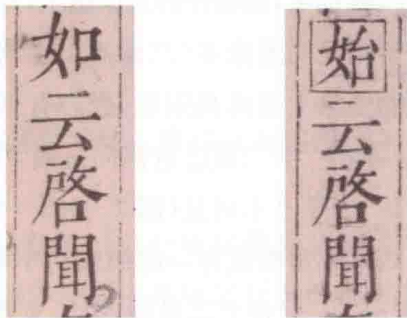 如云啓聞
始云啓聞